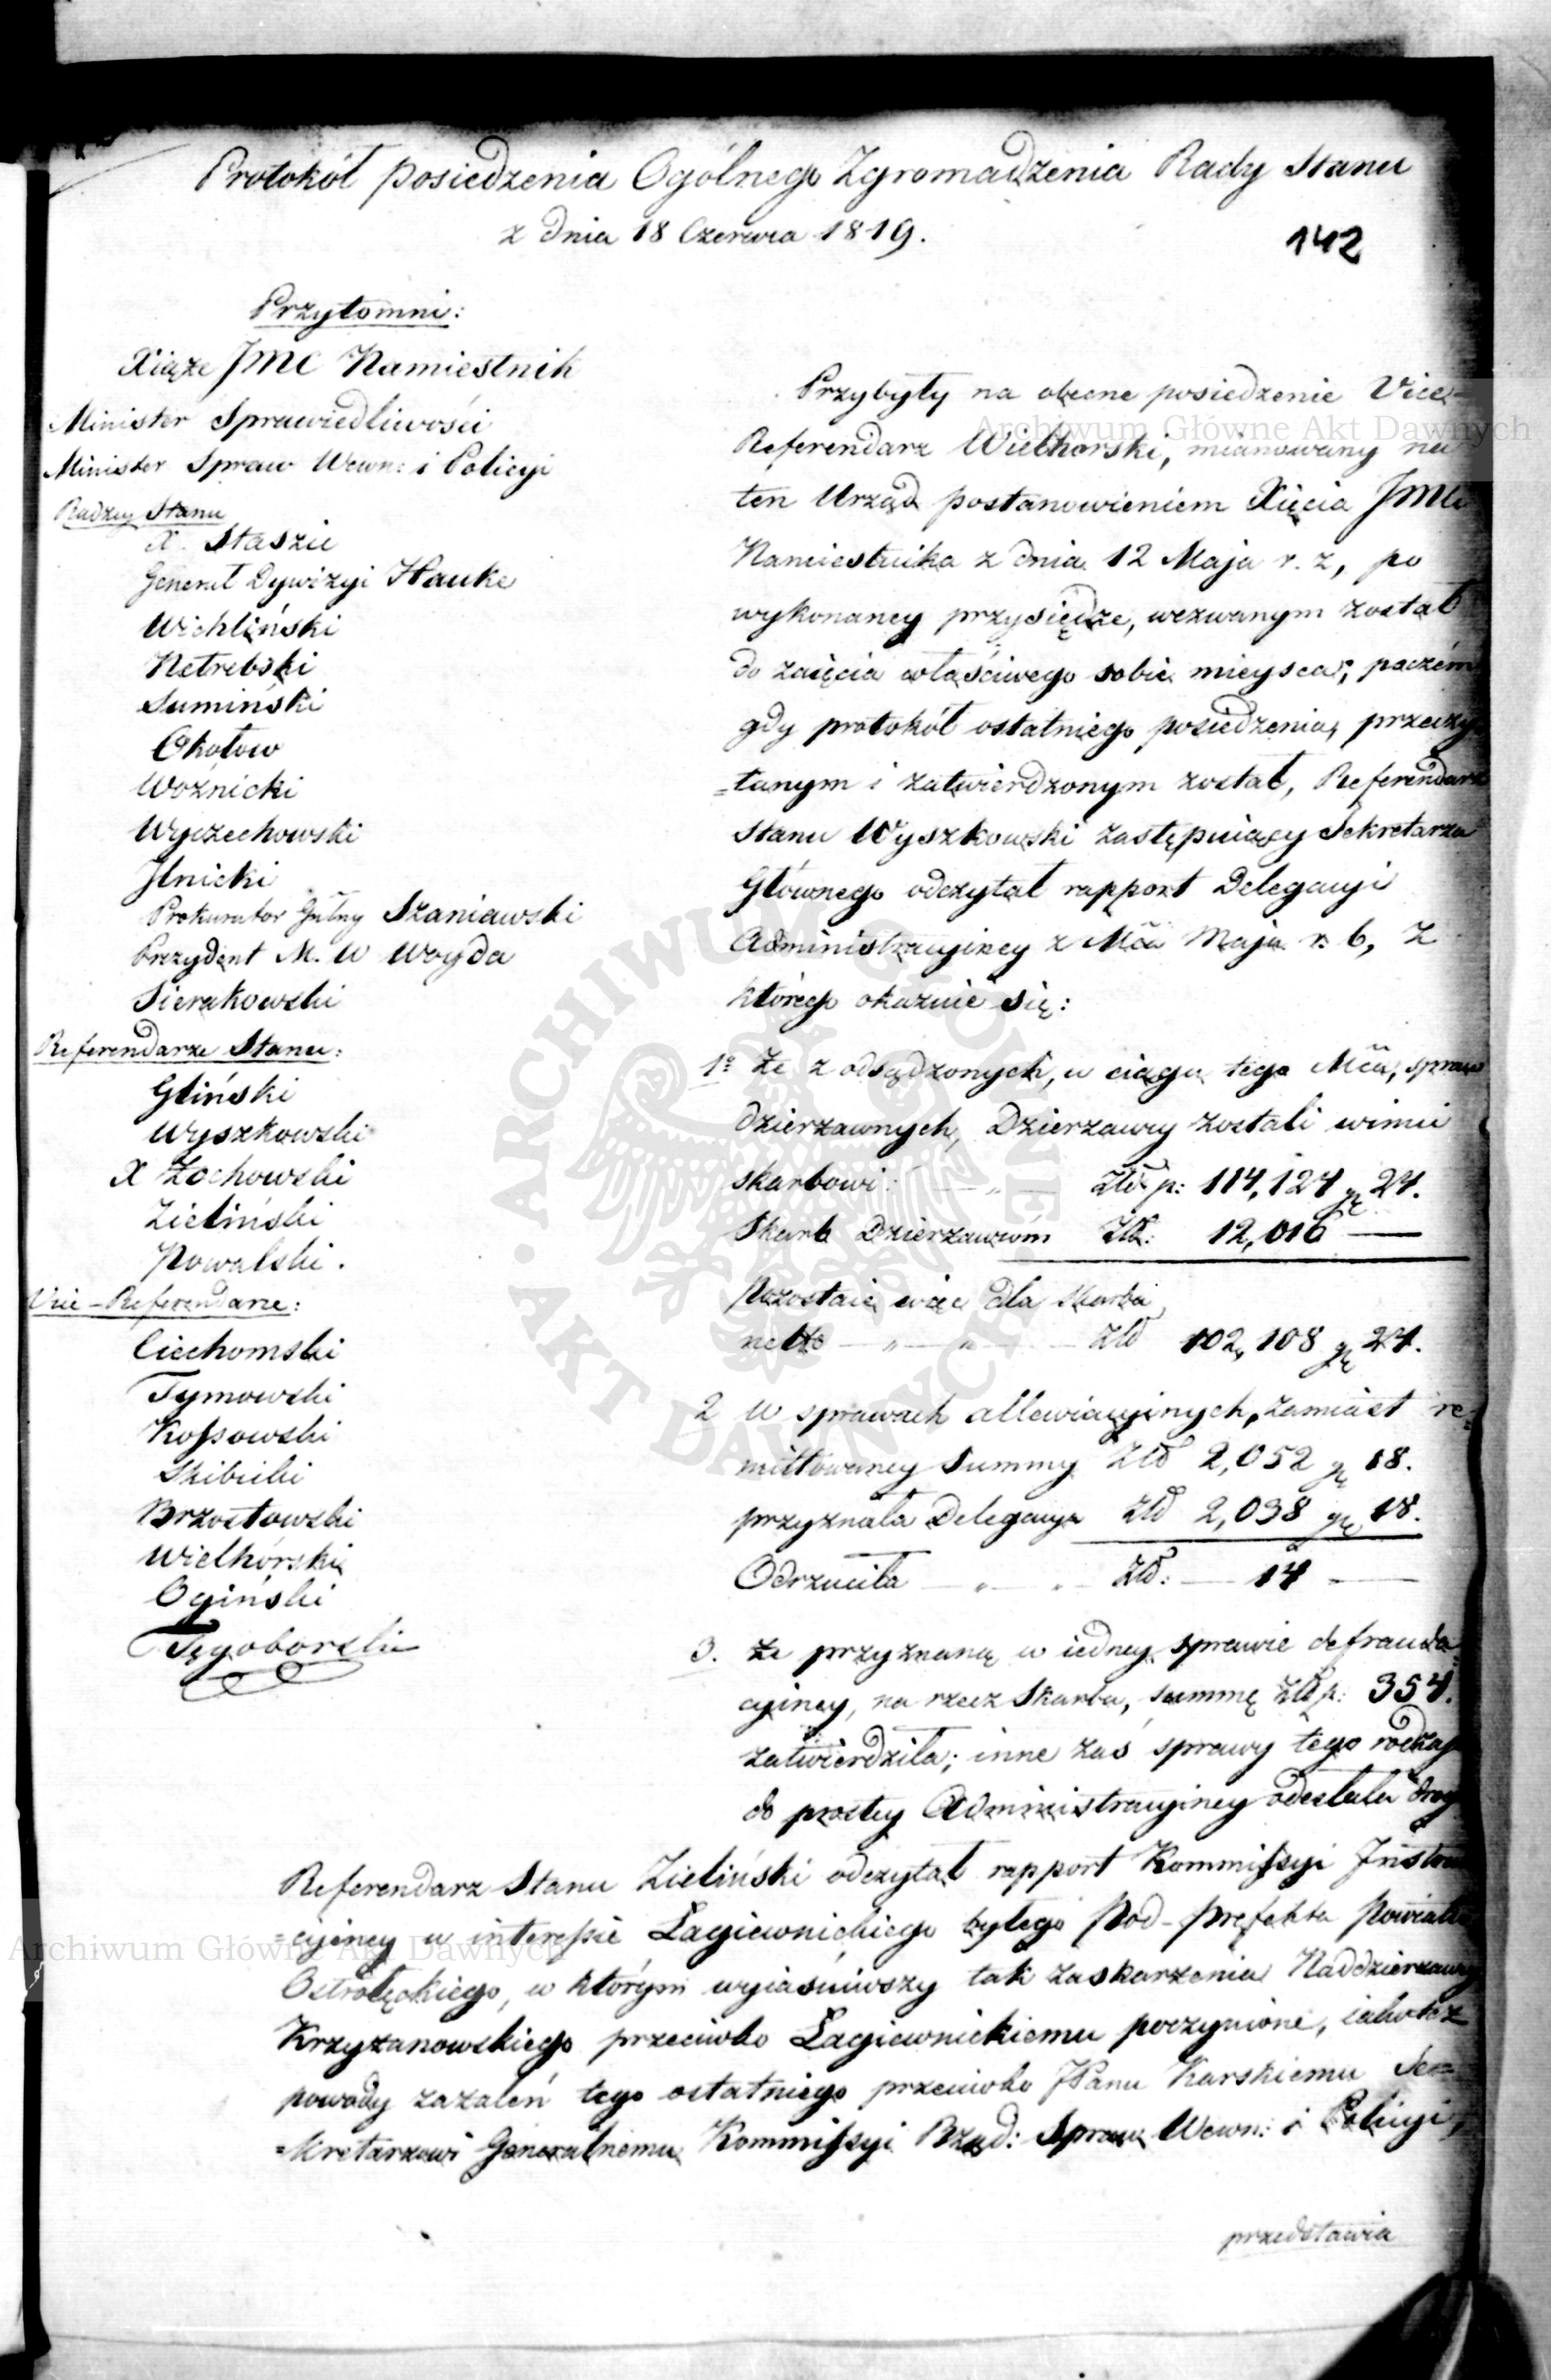 Protokół posiedzenia Ogólnego Zgromadzenia Rady Stanu
z dnia 18 Czerwca 1819.
142
Przytomni:
Xiąże JMC Namiestnik
Minister Sprawiedliwości
Minister Spraw Wewn: i Policyi
Radzcy Stanu
X. Staszic
Generał Dywizyi Hauke
Wichliński
Netrebski
Sumiński
Okołow
Woźnicki
Wyczechowski
Ilnicki
Prokurator Gŭlny Szaniawski
Prezydent M. W Woyda
Sierakowski
Referendarze Stanu:
Gliński
Wyszkowski
X Żochowski
Zieliński
Nowalski.
Vice-Referendarze:
Ciechomski
Tymowski
Kossowski
Skibicki
Brzostowski
Wielhórski
Ogiński
Tęgoborski
Przybyły na obecne posiedzenie Vice-
Referendarz Wielhorski, mianowany na
ten Urząd postanowieniem Xięcia JMC
Namiestnika z dnia 12 Maja r. z, po
wykonaney przysiędze, wezwanym został
do zaięcia właściwego sobie mieysca; poczém
gdy protokół ostatniego posiedzenia, przeczy
=tanym i zatwierdzonym został, Referendarz
Stanu Wyszkowski zastępuiący Sekretarza
Głównego odczytał rapport Delegacyi
Administracyiney z Mca Maja r. b, z
którego okazuie się:
1º Że z odsądzonych, w ciągu tego Mca, spraw
dzierzawnych, Dzierzawcy zostali winni
skarbowi: — „ — Złł p: 114,124 gr 24.
Skarb Dzierzawcóm Złł: 12,016 —
Pozostaie więc dla skarbu
netto — „ — „ — Złł 102,108 gr 24.
2 W sprawach allewiacyinych, zamiast re=
mittowaney Summy Złł 2,052 gr 18.
przyznała Delegacya Złł 2,038 gr 18.
Odrzuciła — „ — „ — Złł: — 14 —
3. Że przyznaną w iedney sprawie defrauda=
cyiney, na rzecz Skarbu, summę Złł p: 354.
zatwierdziła; inne zaś sprawy tego rodzaju
do prostey Administracyiney odesłała drogi
Referendarz Stanu Zieliński odczytał rapport Kommissyi Instruk
=cyiney w interessie Łagiewnickiego byłego Pod-Prefekta Powiatu
Ostrołęckiego, w którym wyiaśniwszy tak zaskarzenia Naddzierzawcy
Krzyzanowskiego przeciwko Łagiewnickiemu poczynione, iakotéz
powody zazaleń tego ostatniego przeciwko JPanu Karskiemu Se=
=kretarzowi Generalnemu Kommissyi Rząd: Spraw Wewn: i Policyi,
przedstawia
Archiwum Główne Akt Dawnych
Archiwum Główne Akt Dawnych
ARCHIWUM GŁÓWNE · AKT DAWNYCH ·